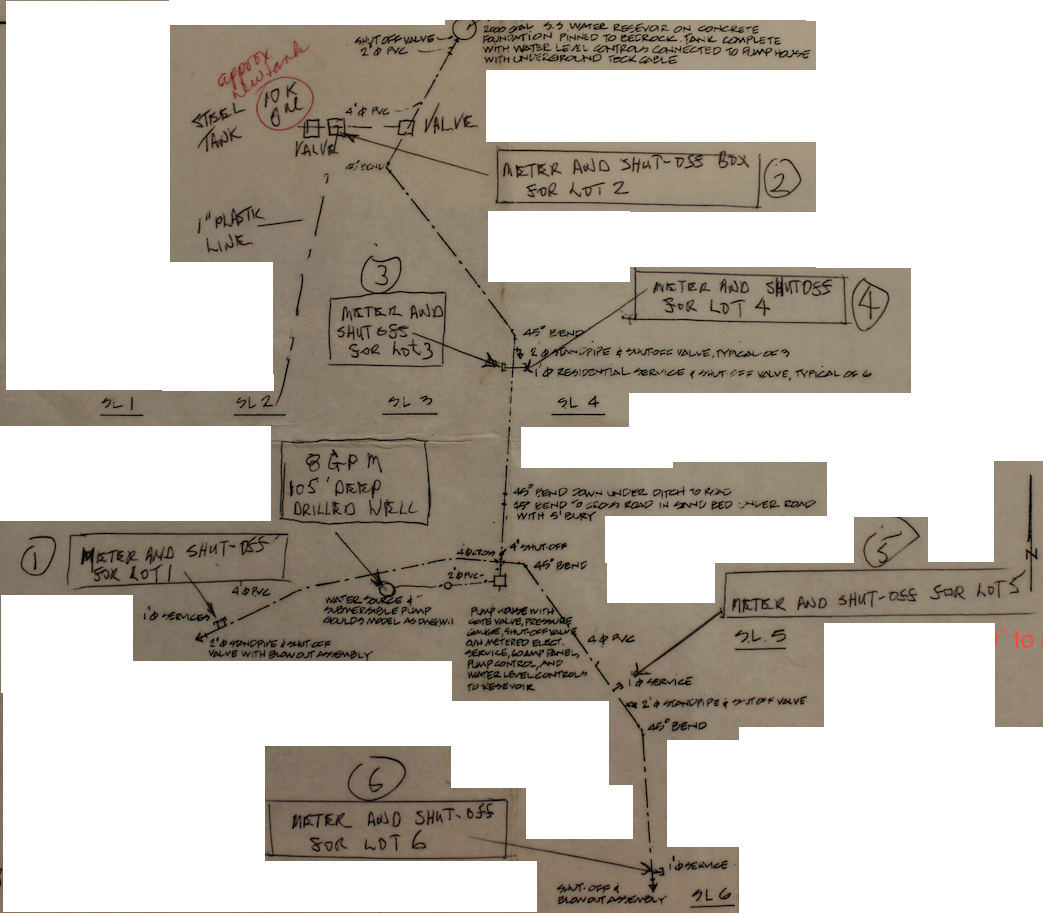 2000 GAL. S.S WATER RESEVOIR ON CONCRETE
FOUNDATION PINNED TO BEDROCK. TANK COMPLETE
WITH WATER LEVEL CONTROLS CONNECTED TO PUMP HOUSE
WITH UNDERGROUND TECK CABLE
SHUT OFF VALVE
2"Φ PVC
approx
new tank
10K
gal
STEEL
TANK
4"Φ PVC
VALVE
VALVE
45° BEND
METER AND SHUT-OFF BOX
FOR LOT 2
2
1" PLASTIC
LINE
3
METER AND
SHUT OFF
FOR LOT 3
METER AND SHUTOFF
FOR LOT 4
4
45° BEND
2"Φ STANDPIPE & SHUTOFF VALVE, TYPICAL OF 3
1"Φ RESIDENTIAL SERVICE & SHUT-OFF VALVE, TYPICAL OF 6
SL 1
SL 2
SL 3
SL 4
8 GPM
105' DEEP
DRILLED WELL
45° BEND DOWN UNDER DITCH TO ROAD
45° BEND TO CROSS ROAD IN SAND BED UNDER ROAD
WITH 5' BURY
1
METER AND SHUT-OFF
FOR LOT 1
4"Φ CROSS
4" SHUT-OFF
45° BEND
4"Φ PVC
2"Φ PVC
1"Φ SERVICES
WATER SOURCE &
SUBMERSIBLE PUMP
2"Φ STANDPIPE & SHUT OFF
VALVE WITH BLOWOUT ASSEMBLY
PUMP HOUSE WITH
GATE VALVE, PRESSURE
GAUGE, SHUT-OFF VALVE
O/H METERED ELECT.
SERVICE, 60 AMP PANEL,
PUMP CONTROL, AND
WATER LEVEL CONTROLS
TO RESEVOIR
5
METER AND SHUT-OFF FOR LOT 5
SL 5
N
1" to
4"Φ PVC
1"Φ SERVICE
2"Φ STANDPIPE & SHUT OFF VALVE
45° BEND
6
METER AND SHUT-OFF
FOR LOT 6
1"Φ SERVICE
SHUT-OFF &
BLOWOUT ASSEMBLY
SL 6